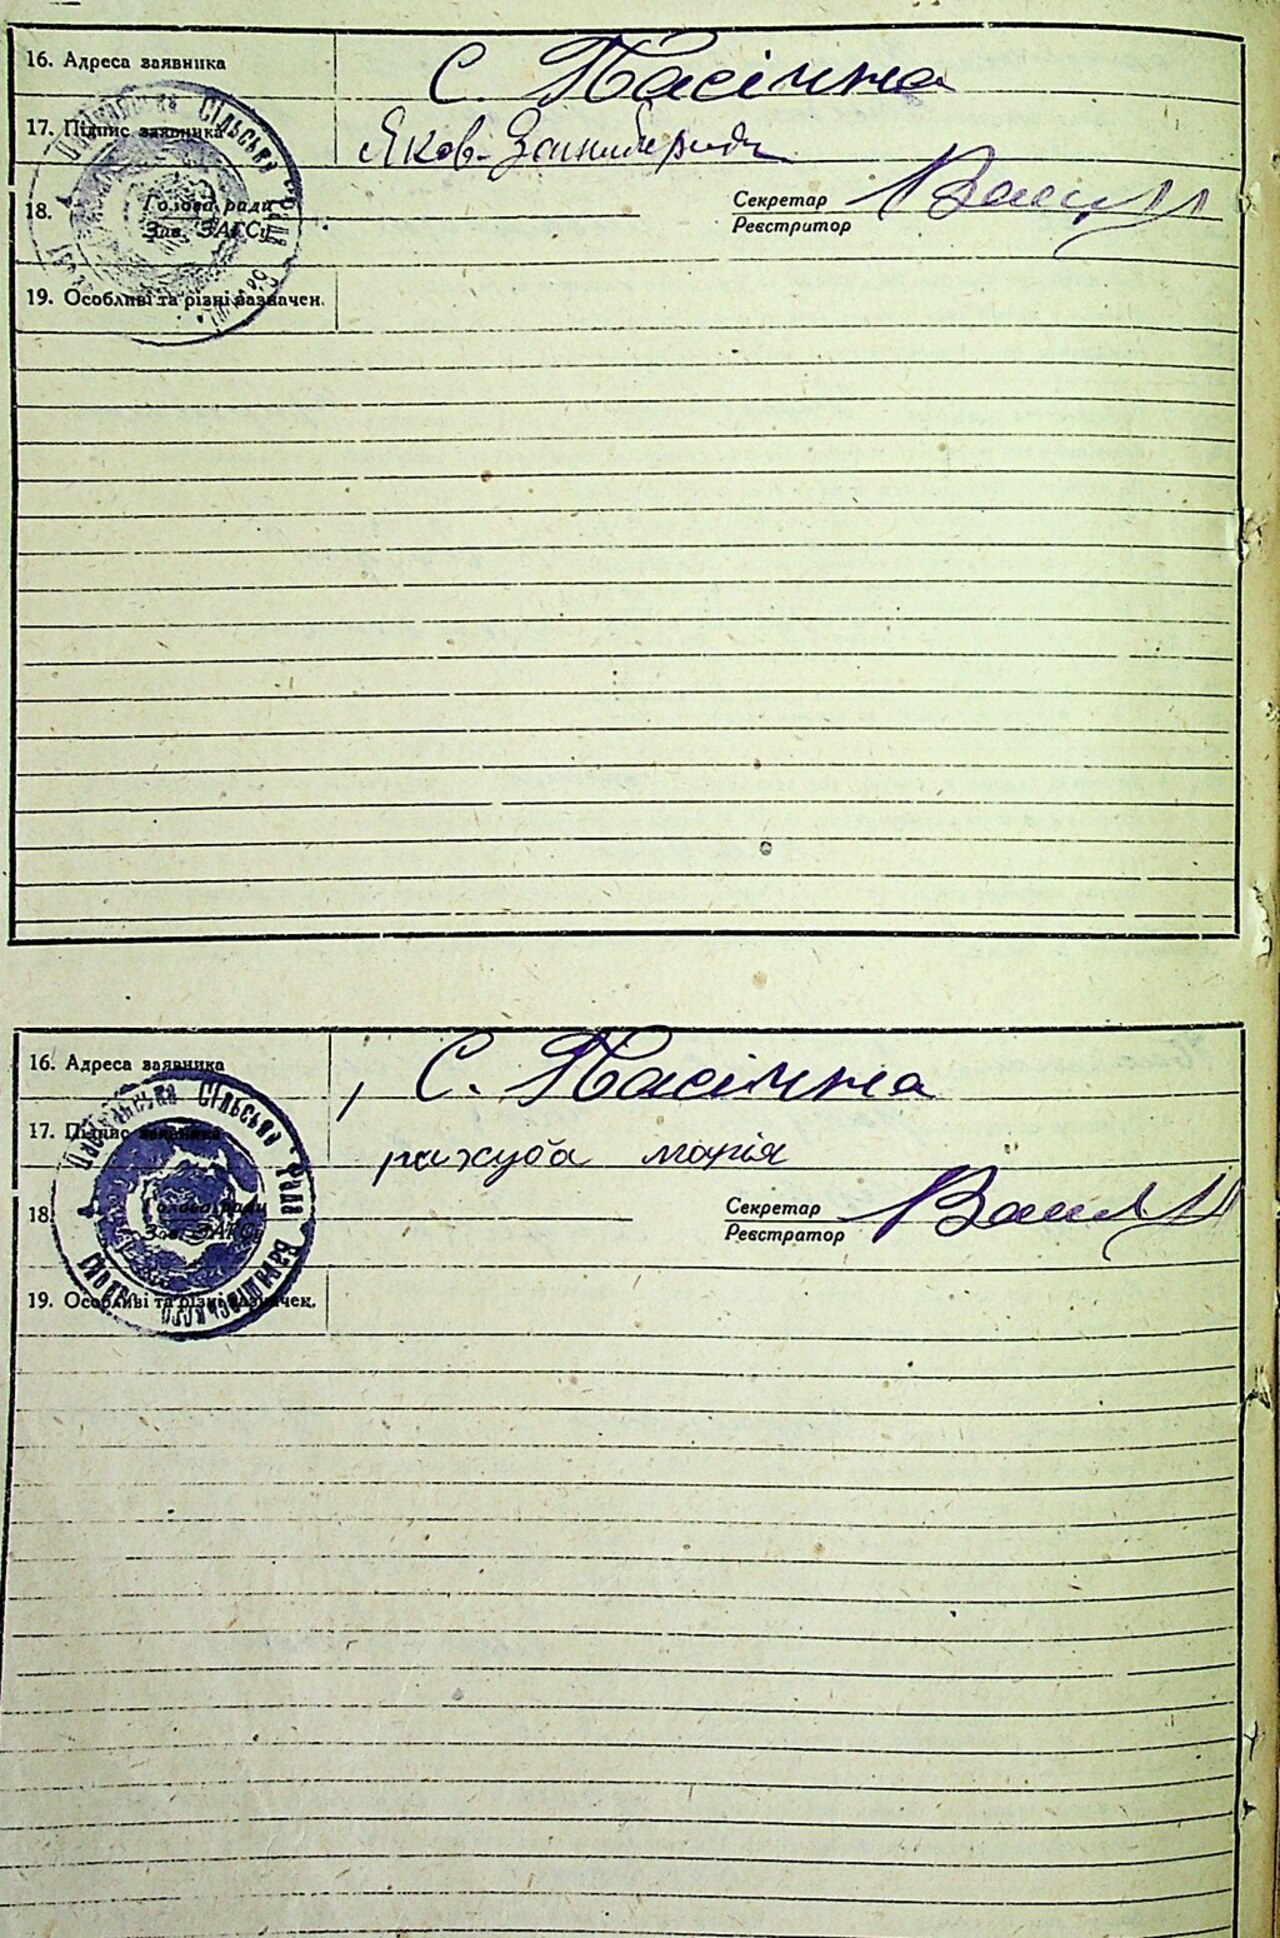 16. Адреса заявника С. Пасічна
17. Підпис заявника Яков
18. Голова ради Секретар
Зав. ЗАГСу Реєстритор
19. Особливі та різні зазначен.
Сільська Рада
16. Адреса заявника С. Пасічна
17. Підпис заявника марія
18 Голова ради Секретар
Зав. ЗАГСу Реєстратор
19. Особливі та різні зазначек.
Сільська Рада